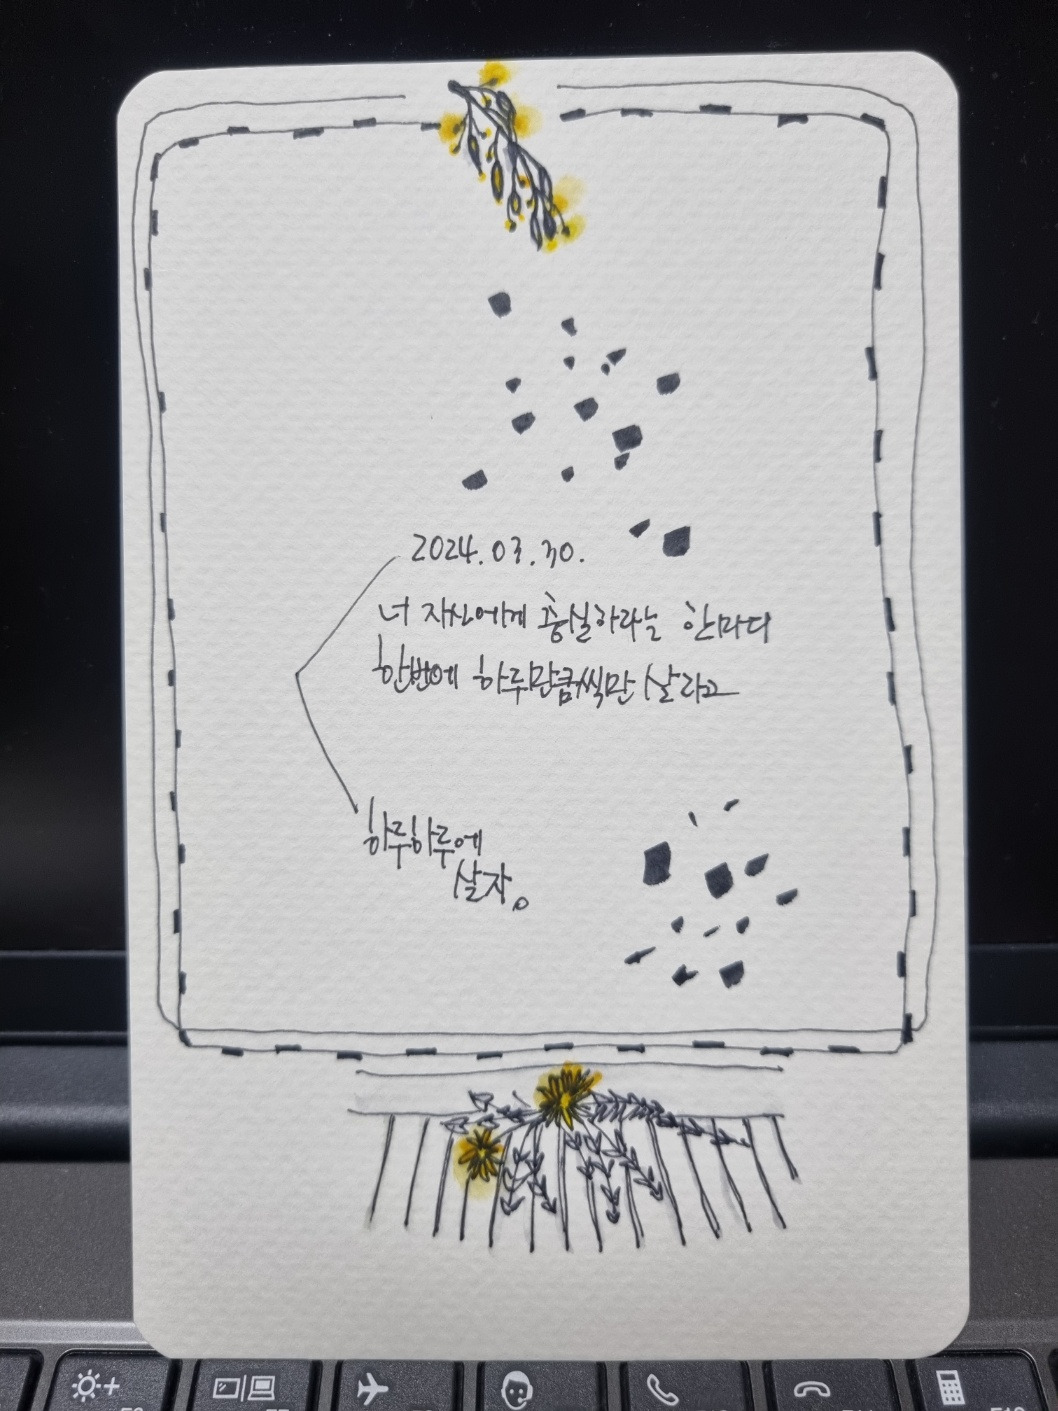 2024.03.30.
너 자신에게 충실하라는 한마디
한번에 하루만큼씩만 살라고
하루하루에
살자。